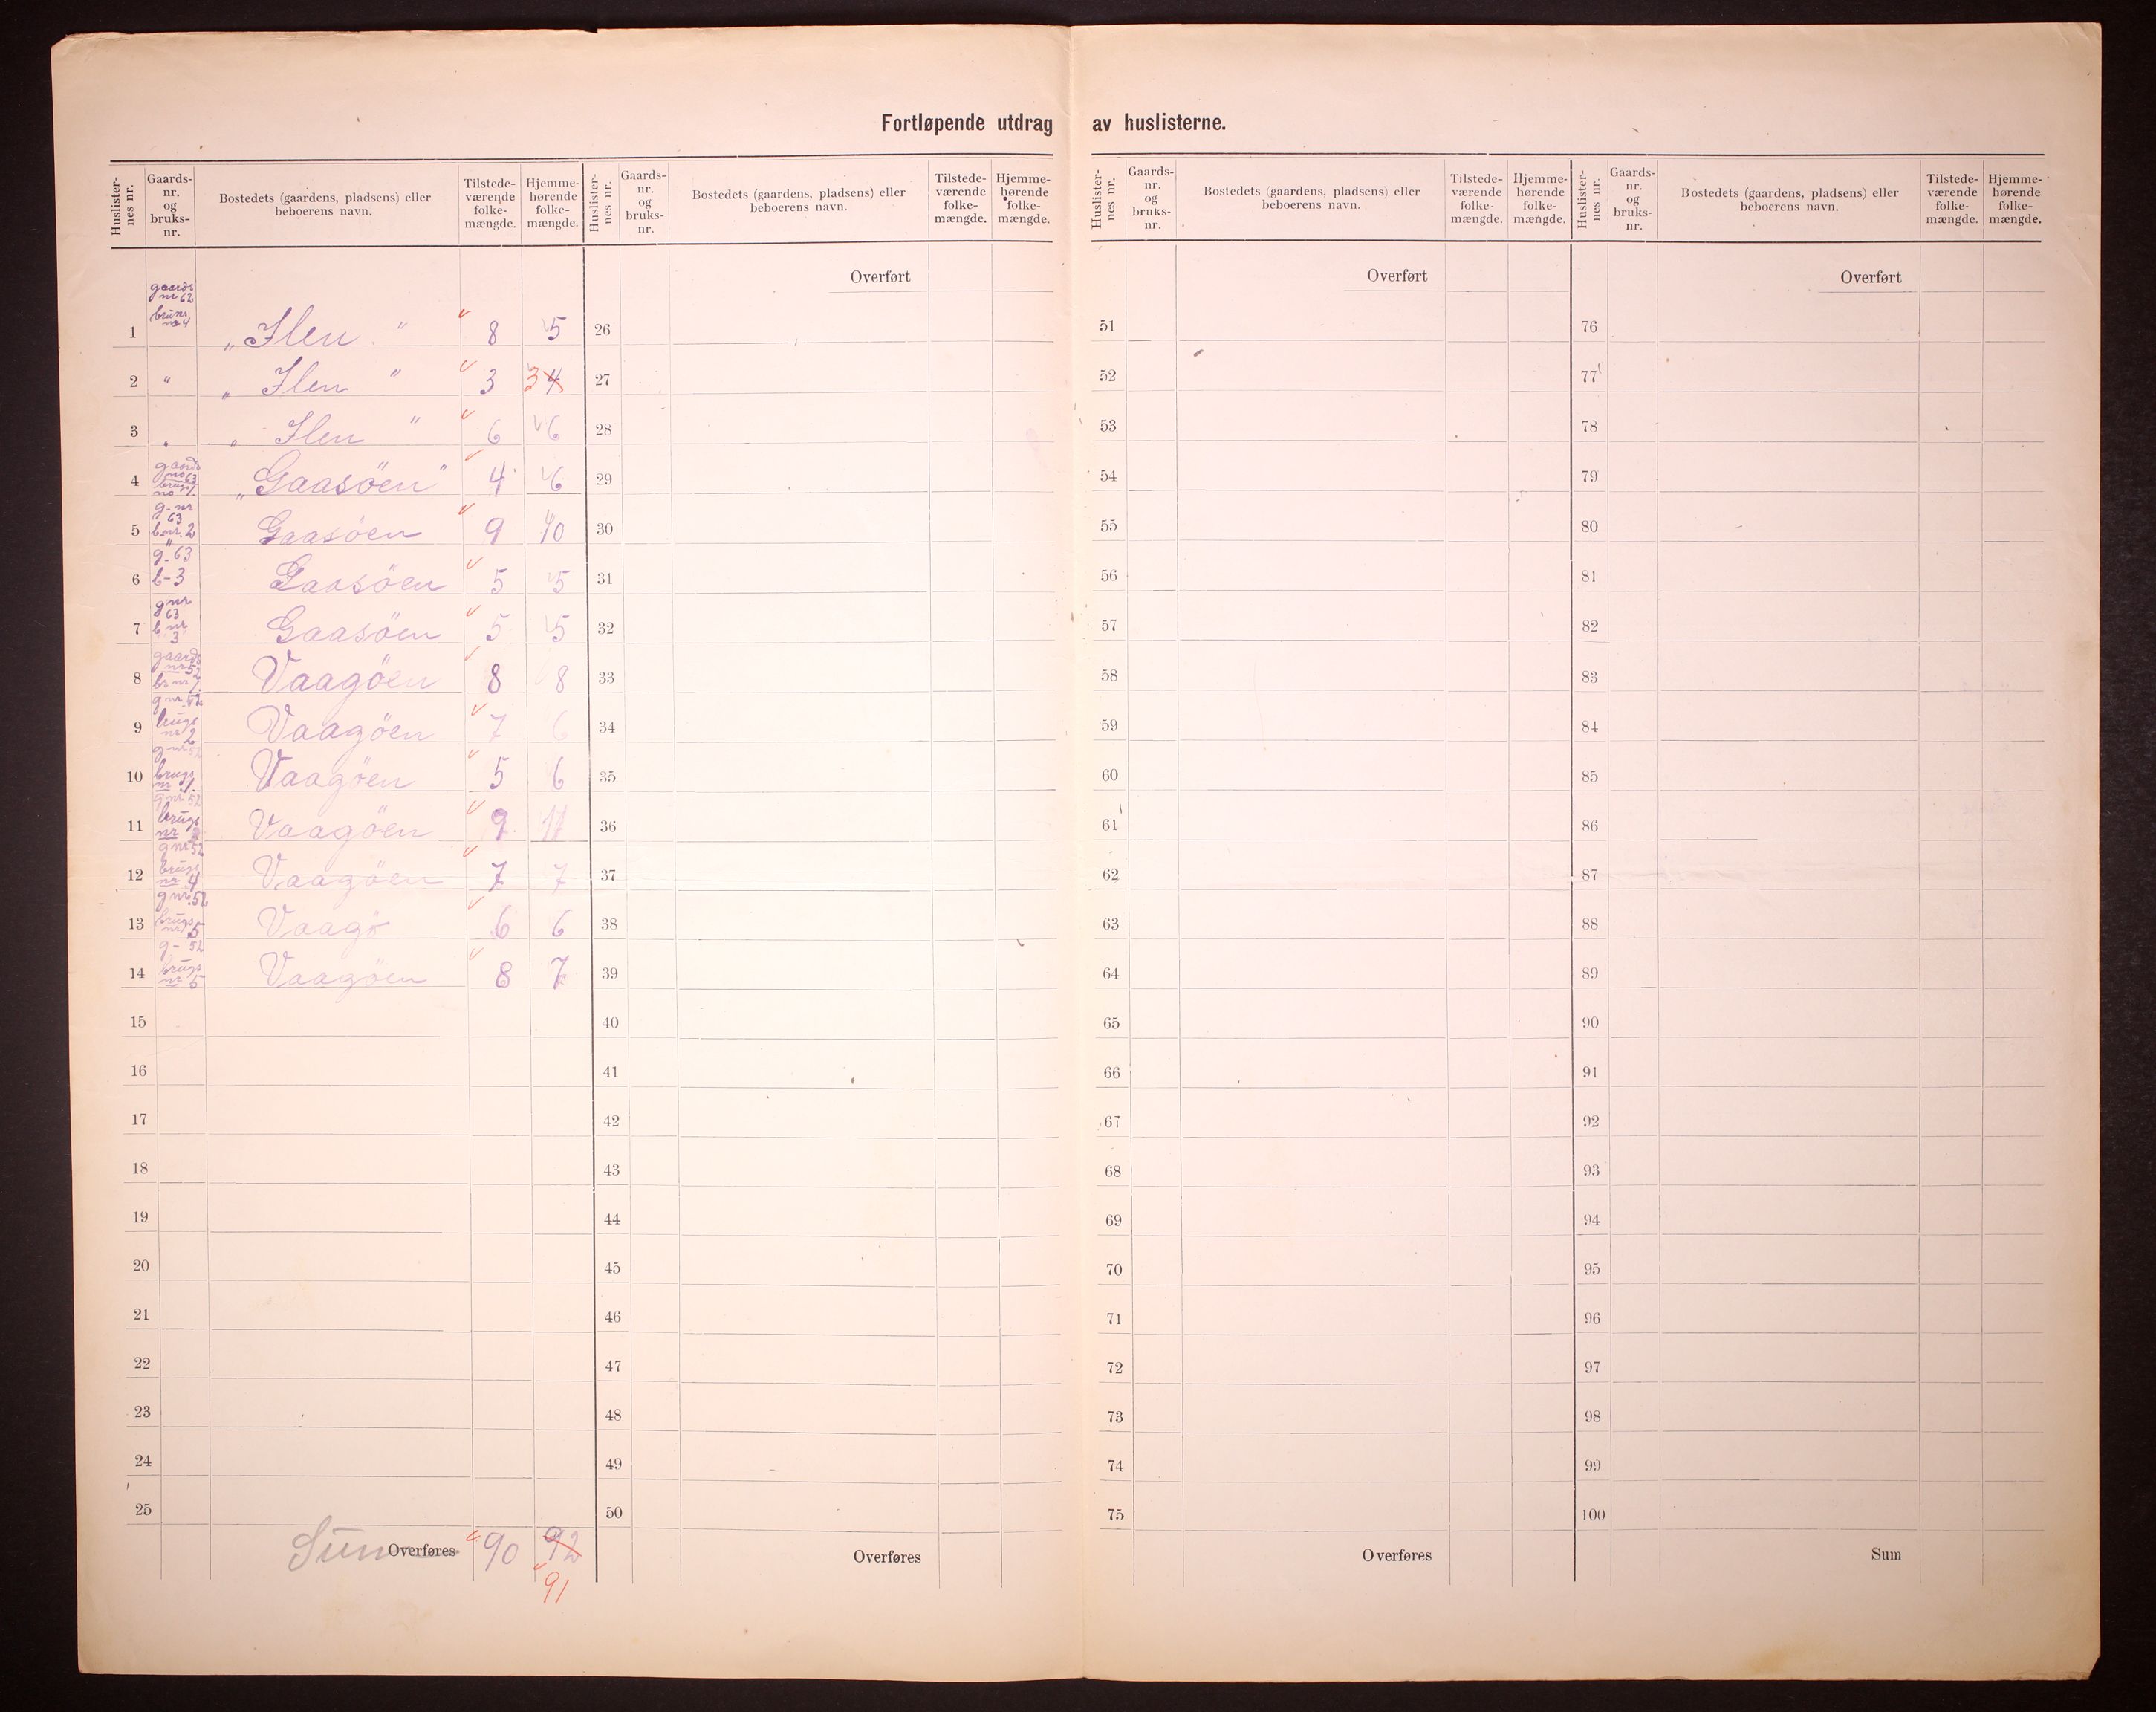 Fortløpende utdrag av huslisterne.
Huslister-nes nr. Gaards-nr. og bruks-nr. Bostedets (gaardens, pladsens) eller beboerens navn. Tilstede-værende folke-mængde. Hjemme-hørende folke-mængde.
Huslister-nes nr. Gaards-nr. og bruks-nr. Bostedets (gaardens, pladsens) eller beboerens navn. Tilstede-værende folke-mængde. Hjemme-hørende folke-mængde.
Huslister-nes nr. Gaards-nr. og bruks-nr. Bostedets (gaardens, pladsens) eller beboerens navn. Tilstede-værende folke-mængde. Hjemme-hørende folke-mængde.
Huslister-nes nr. Gaards-nr. og bruks-nr. Bostedets (gaardens, pladsens) eller beboerens navn. Tilstede-værende folke-mængde. Hjemme-hørende folke-mængde.
Overført Overført Overført
gaards nr 62
1 no 4 „Ilen" 8 5 26 51 76
2 " „Ilen" 3 3 4 27 52 77
3 „ „Ilen" 6 6 28 53 78
4 gaards no 63 brugs no 1 „Gaasöen" 4 6 29 54 79
5 g. nr 63 b. nr. 2 Gaasöen 9 10 30 55 80
6 g. 63 b-3 Gaasöen 5 5 31 56 81
7 gnr 63 b nr 3 Gaasöen 5 5 32 57 82
8 gaards nr 52 br nr 1 Vaagöen 8 8 33 58 83
9 gnr. 52 brugs nr 2 Vaagöen 7 6 34 59 84
10 g nr 52 brugs nr Vaagöen 5 6 35 60 85
11 gnr 52 brugs nr Vaagöen 9 11 36 61 86
12 gnr 52 brugs nr 4 Vaagöen 7 7 37 62 87
13 gnr. 52 brugs nr 5 Vaagö 6 6 38 63 88
14 g- 52 brugs nr Vaagöen 8 7 39 64 89
15 40 65 90
16 41 66 91
17 42 67 92
18 43 68 93
19 44 69 94
20 45 70 95
21 46 71 96
22 47 72 97
23 48 73 98
24 49 74 99
25 50 75 100
Sum Overføres 90 92 Overføres Overføres Sum
91